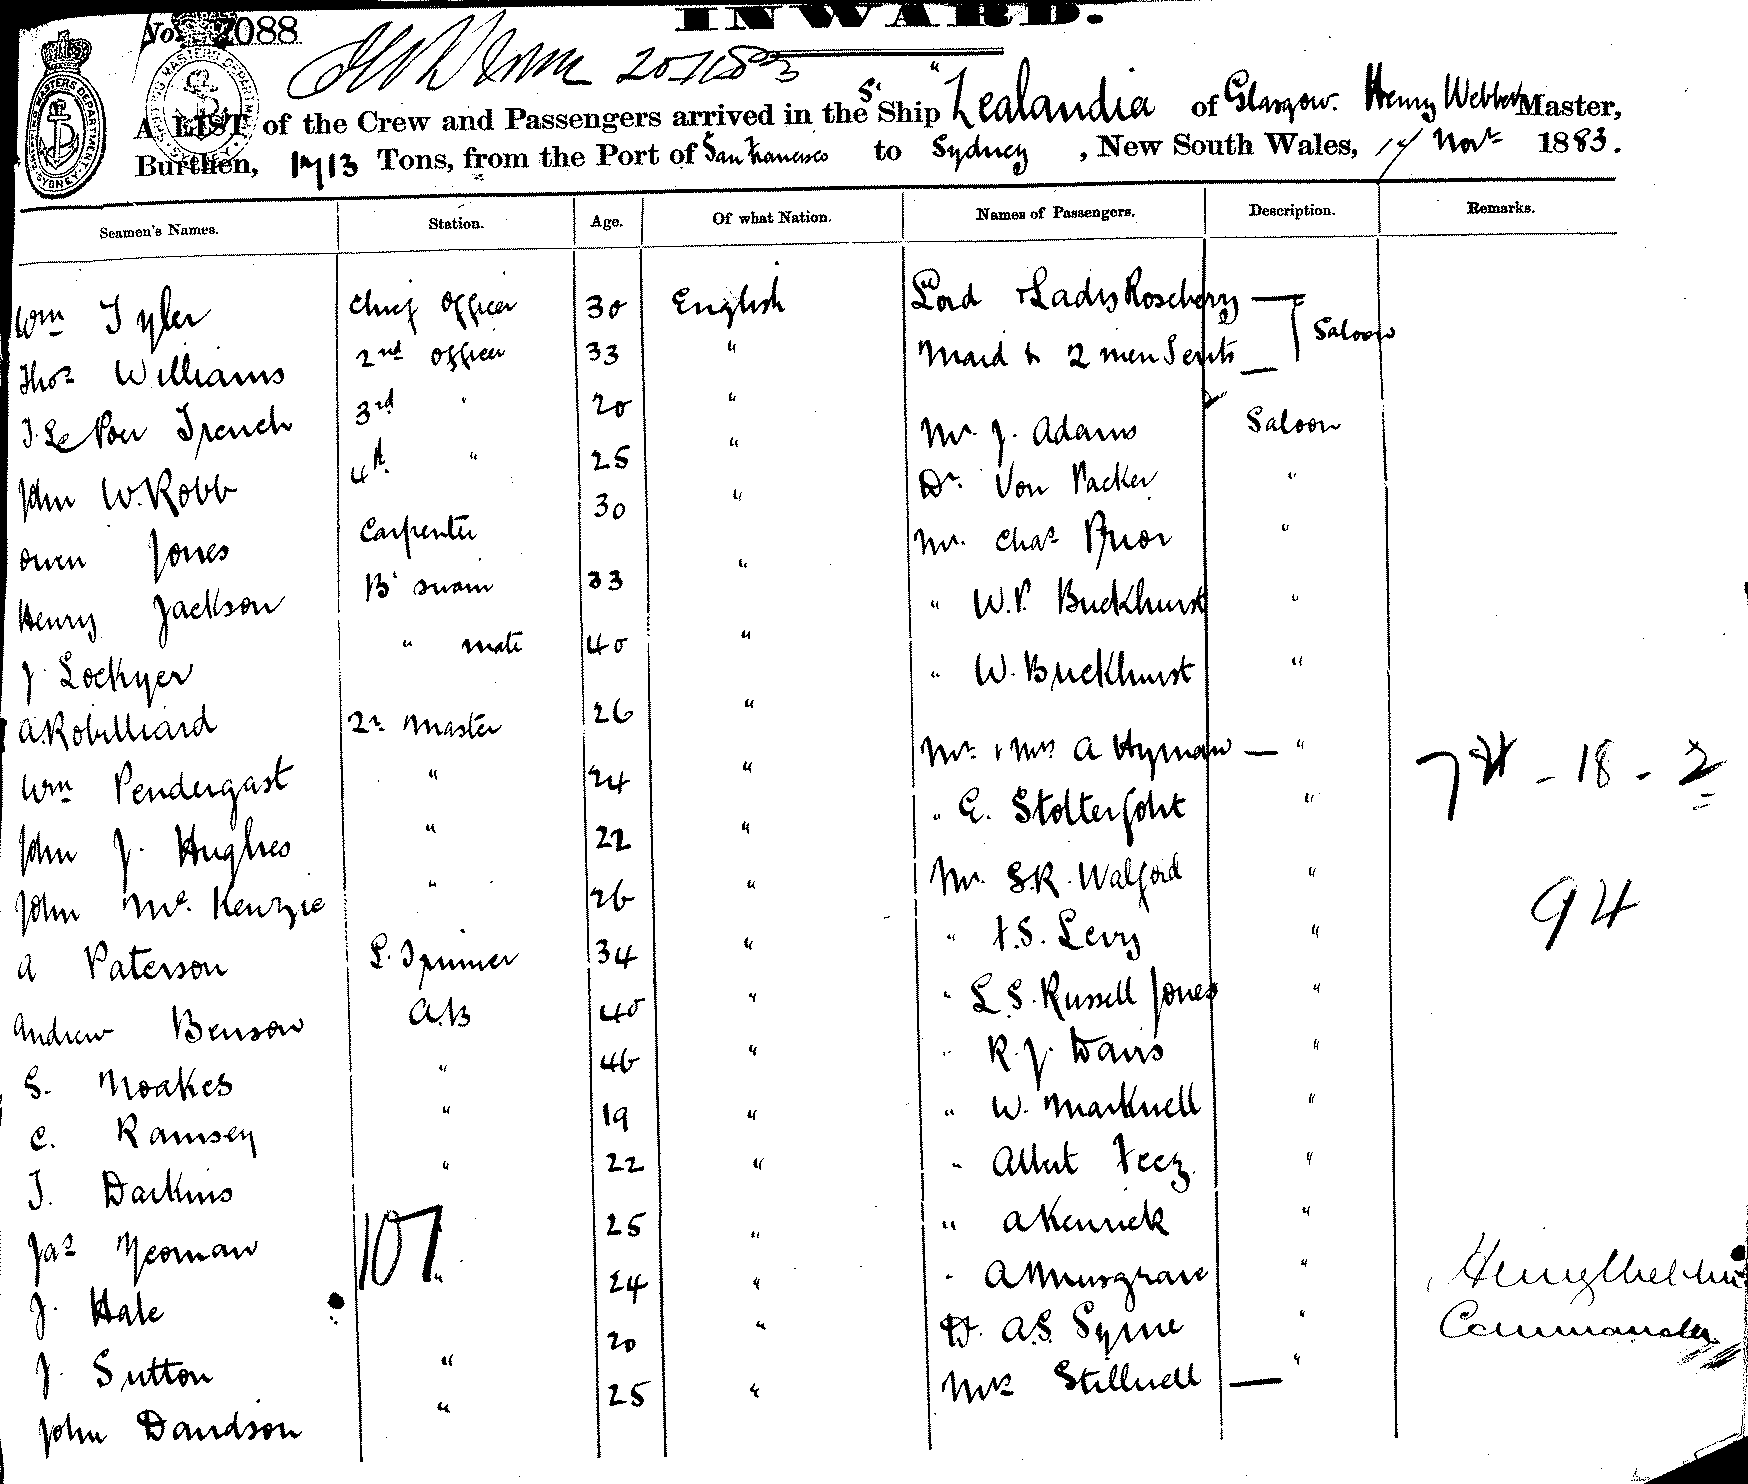 INWARD.
No. 2088
A LIST of the Crew and Passengers arrived in the S. Ship "Zealandia of Glasgow. Henry Webber Master,
Burthen, Tons, from the Port of San Francisco to Sydney, New South Wales, Novr 1883.
Seamen's Names. Station. Age. Of what Nation. Names of Passengers. Description. Remarks.
Wm Tyler Chief Officer 30 English Lord & Lady Rosebery — Saloon
Thos Williams 2nd Officer 33 " Maid & 2 men Servts —
J. Le Poer Trench 3rd " 20 " Mr. J. Adams Saloon
John W. Robb 4th " 25 " Dr. Von Packer "
Owen Jones Carpenter 30 " Mr. Chas Prior "
Henry Jackson B'swain 33 " " W.P. Buckhurst "
J Lockyer " mate 40 " " W. Buckhurst "
A Robilliard 2r Master 26 " Mr. & Mrs A Hyman — "
Wm Pendergast " 24 " " E. Stolterfoht "
John J. Hughes " 22 " Mr. S.R. Walford "
John Mc. Kenzie " 26 " " F.S. Levy "
A Paterson L. Trimmer 34 " " L.S. Russell Jones "
Andrew Benson A.B 40 " " R.J. Davis "
S. Noakes " 46 " " W. Marknell "
C. Ramsey " 19 " " Albert Feez. "
J. Darkins " 22 " " A Kenrick "
Jas Yeoman " 25 " " A Musgrave "
J. Hale 24 " Dr. A.S. Syme "
J. Sutton " 20 " Mrs Stillwell — "
John Davidson " 25 "
107
- 18 - 2
94
Henry Webber
Commander